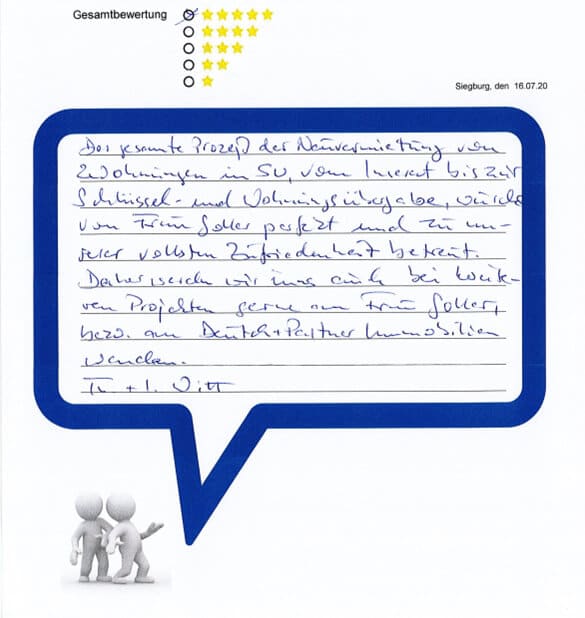 Gesamtbewertung
Siegburg, den 16.07.20
Der gesamte Prozeß der Neuvermietung von
2 Wohnungen in SU, vom Inserat bis zur
Schlüssel- und Wohnungsübergabe, wurde
von Frau Soller perfekt und zu un-
serer vollsten Zufriedenheit betreut.
Daher werden wir uns auch bei weite-
ren Projekten gerne an Frau Soller,
bzw. an Deutch + Partner Immobilien
wenden.
+ I. Witt